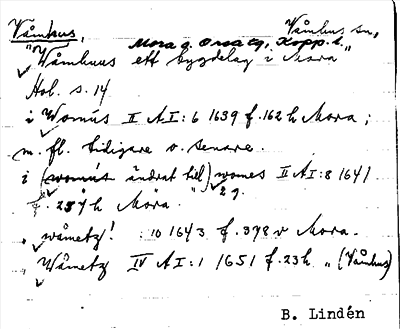 Våmhus, Våmhus sn,
Mora o. Orsa tg, Kopp. l.
"Wåmhuus ett bygdelag i Mora"
Hol. s. 14
i Womús II A I: 6 1639 f. 162 h Mora;
m. fl. tidigare o. senare.
i (womús ändrat till) womes II A I: 8 1641
f. 254 h Mora. " 2 g.
" wåmetz! : 10 1643 f. 398 v Mora.
" Wåmetz IV A I: 1 1651 f. 23 h " (Våmhus)
B. Lindén